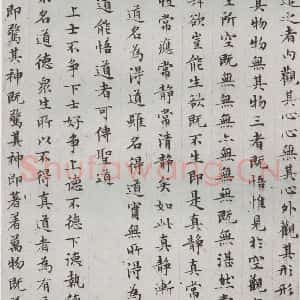 遣之者內觀其心心無其心外觀其形形
其物物無其物三者既悟惟見於空觀
空所空既無無無亦無無無既無湛然
欲豈能生欲既不生即是真靜真常
性常應常靜常清靜矣如此真靜漸
道名為得道雖名得道實無所得為
道能悟道者可傳聖道
上士不爭下士好爭上德不德下德執德
名道德眾生所以不得真道者為有
即驚其神既驚其神即著著萬物既
Shufawang.CN